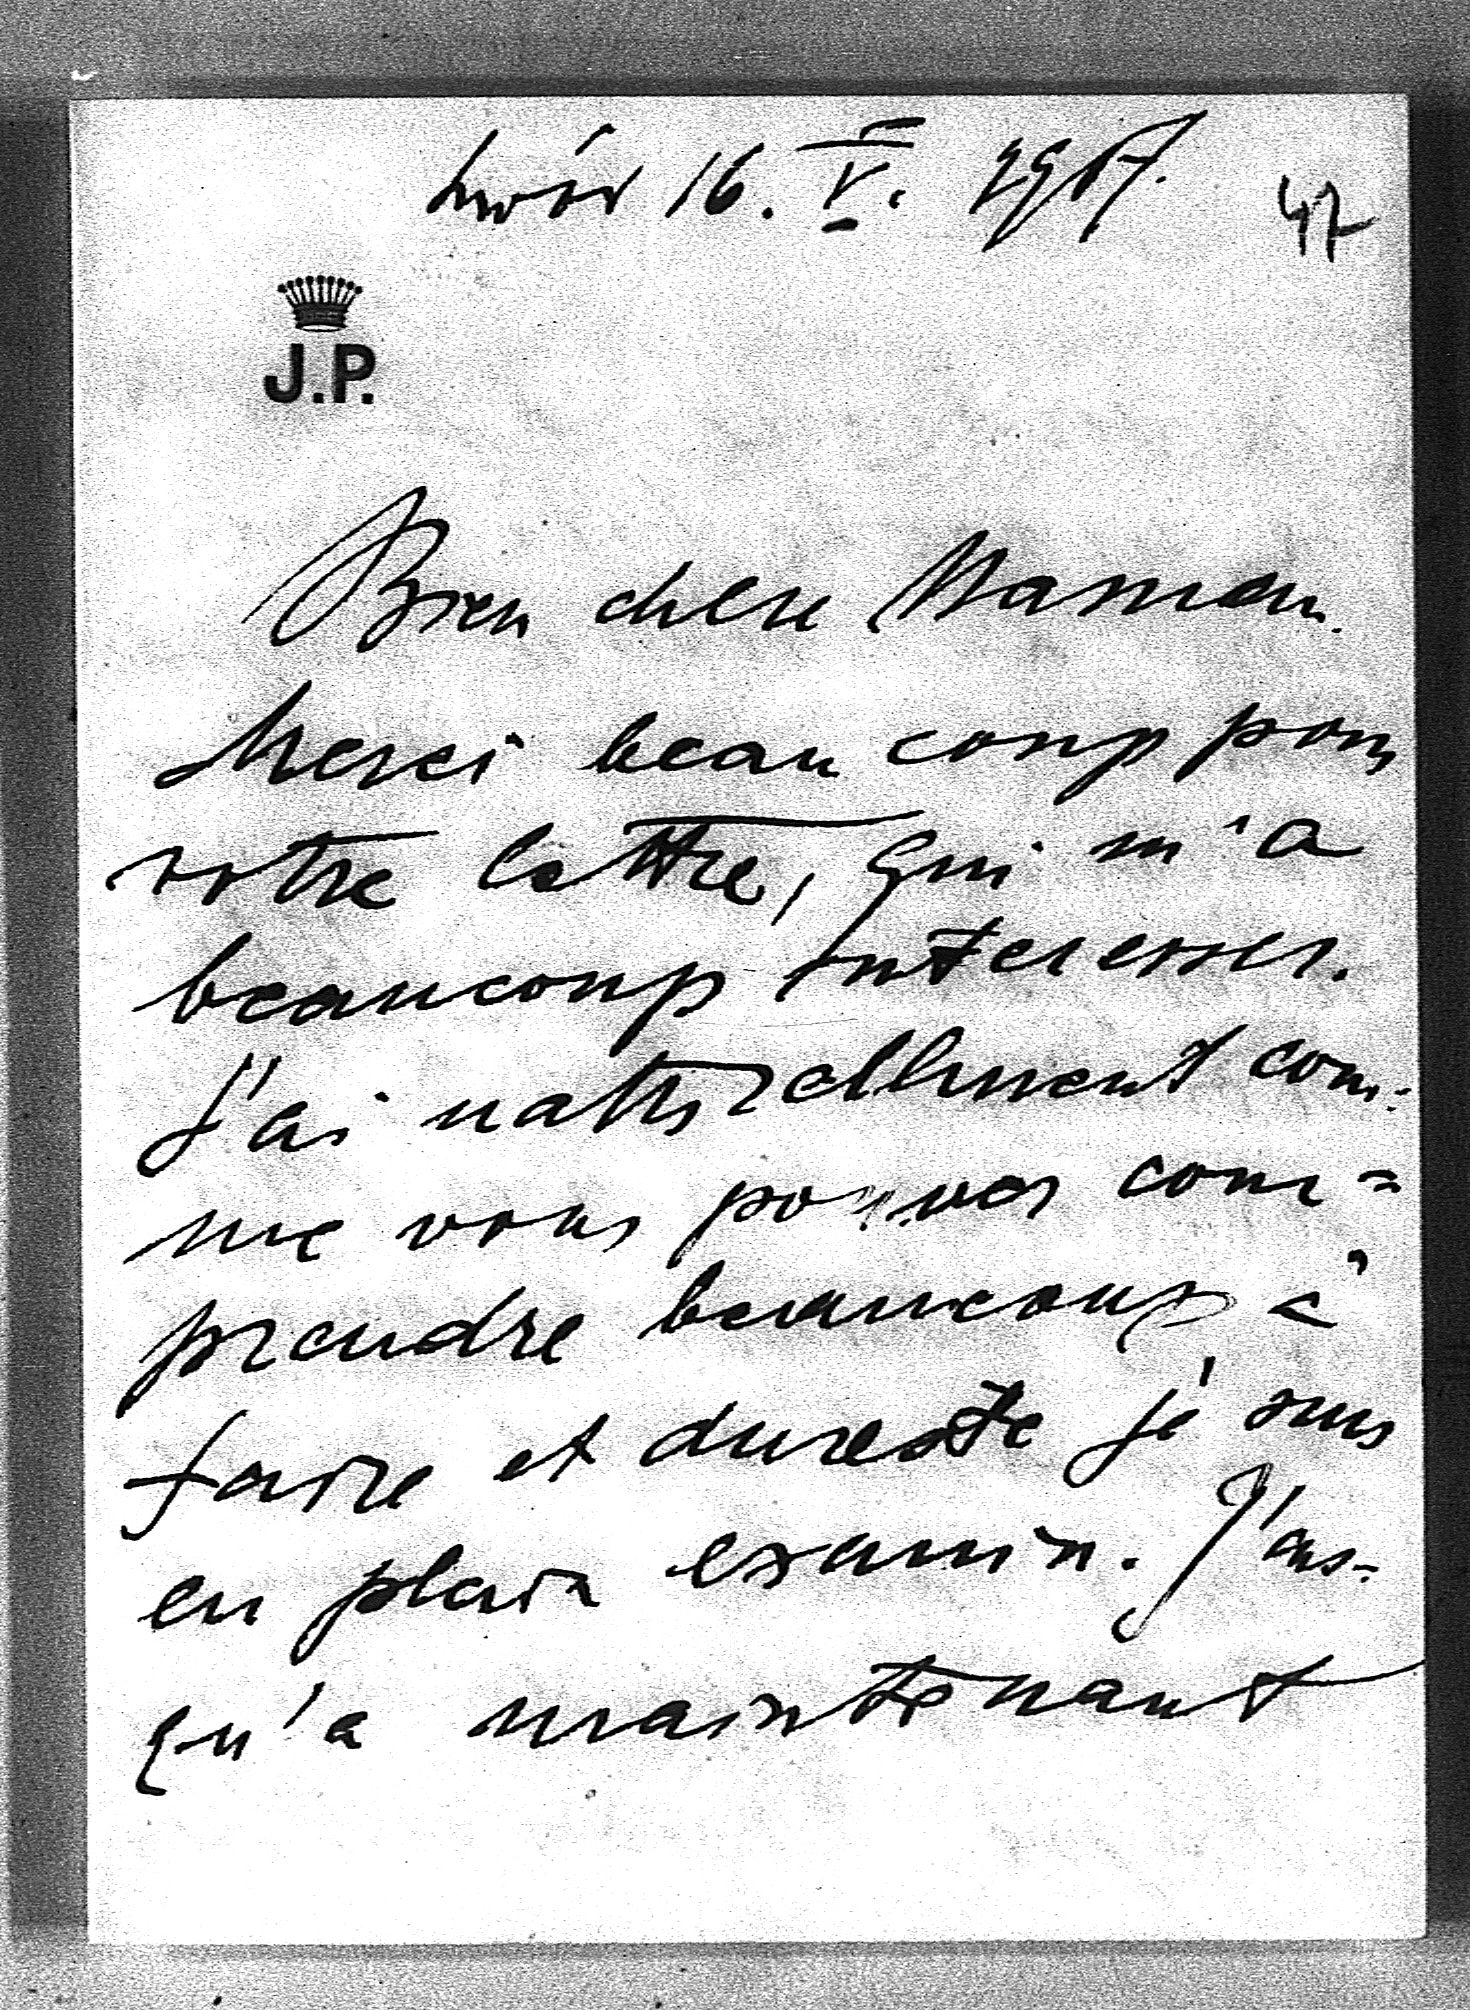 Lwów 16. V. 1917.
47
J.P.
Bien chere Maman.
Merci beaucoup pour
votre lettre, qui m'a
beaucoup interesser.
J'ai naturellment com-
me vous pouves com=
prendre beaucoup à
faire et dureste je suis
en plain examin. J'us-
qu'a maintenant